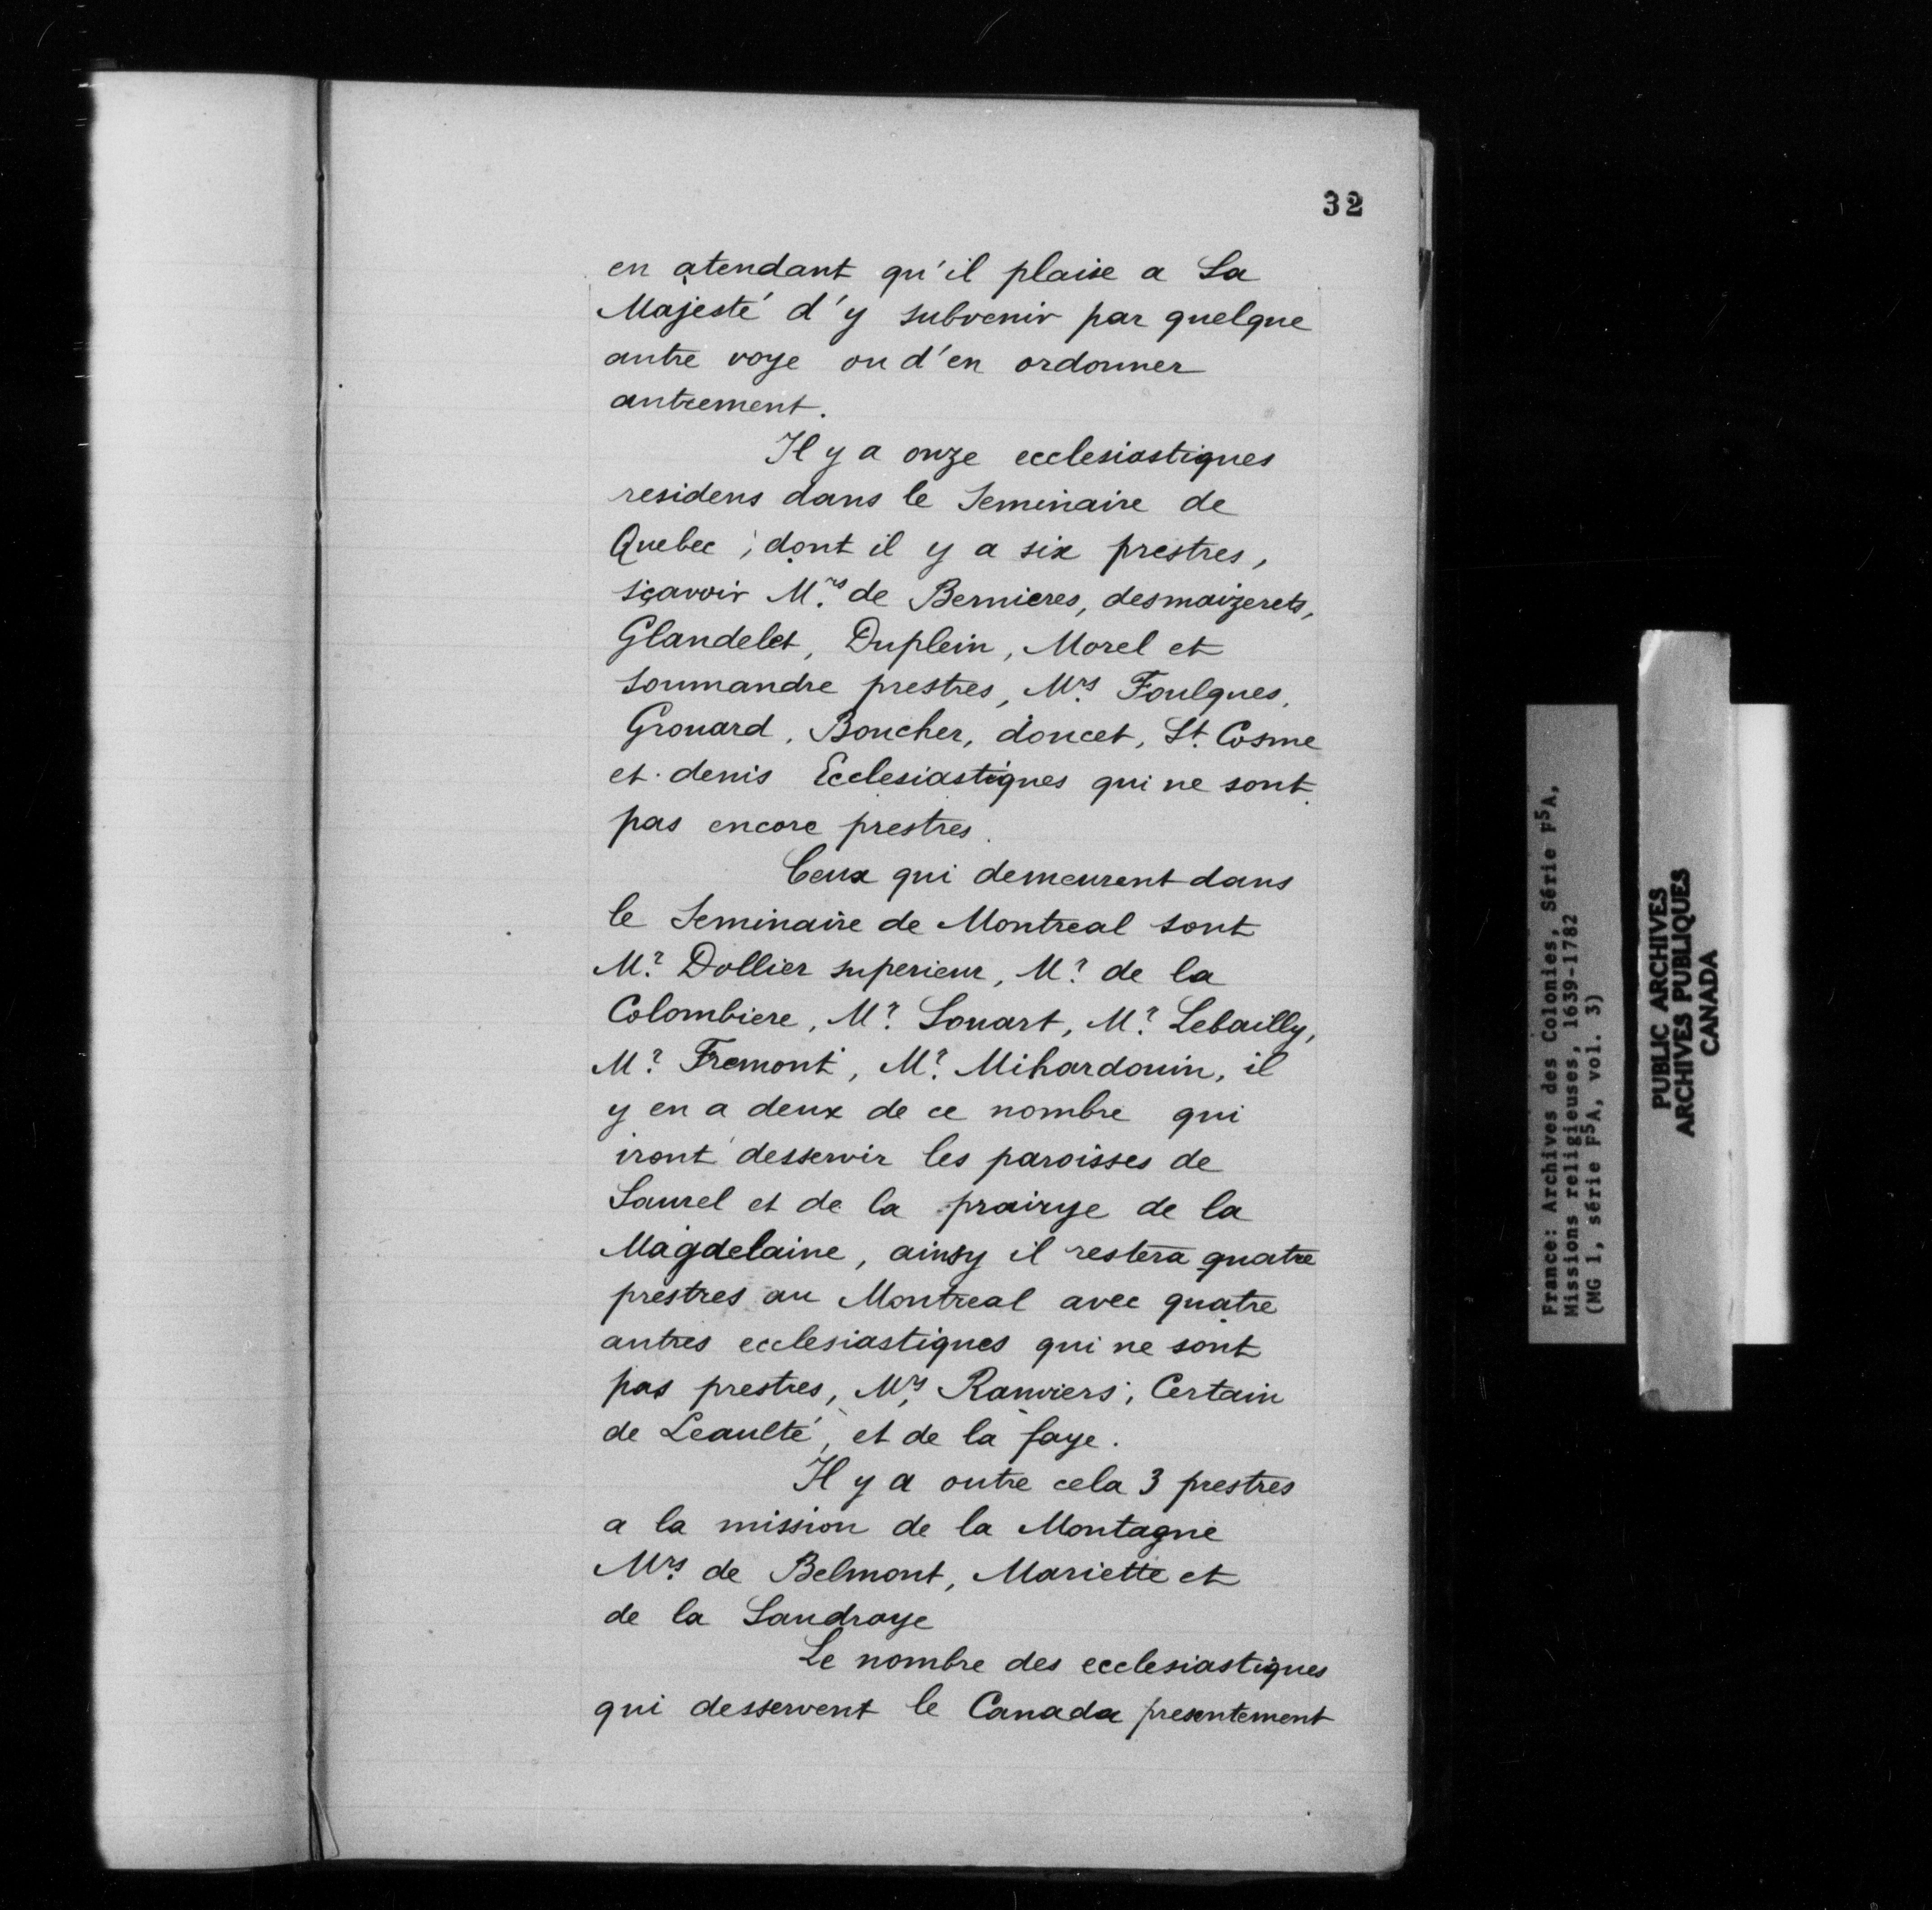 32
en atendant qu'il plaise a Sa
Majesté d'y subvenir par quelque
autre voye ou d'en ordonner
autrement.
Il y a onze ecclesiastiques
residens dans le Seminaire de
Quebec, dont il y a six prestres,
sçavoir M.rs de Bernieres, desmaizerets,
Glandelet, Duplein, Morel et
Soumandre prestres, Mrs Foulques,
Grouard, Boucher, doucet, St. Cosme
et denis Ecclesiastiques qui ne sont
pas encore prestres.
Ceux qui demeurent dans
le Seminaire de Montreal sont
Mr. Dollier superieur, Mr. de la
Colombiere, Mr. Souart, Mr. Lebailly,
Mr. Fremont, Mr. Mihardouin, il
y en a deux de ce nombre qui
iront desservir les paroisses de
Saurel et de la prairye de la
Magdelaine, ainsy il restera quatre
prestres au Montreal avec quatre
autres ecclesiastiques qui ne sont
pas prestres, Mrs Ranviers, Certain
de Leaulté, et de la faye.
Il y a outre cela 3 prestres
a la mission de la Montagne
Mrs de Belmont, Mariette et
de la Sandraye
Le nombre des ecclesiastiques
qui desservent le Canada presentement
France: Archives des Colonies, Série F5A,
Missions religieuses, 1639-1782
(MG 1, série F5A, vol. 3)
PUBLIC ARCHIVES
ARCHIVES PUBLIQUES
CANADA